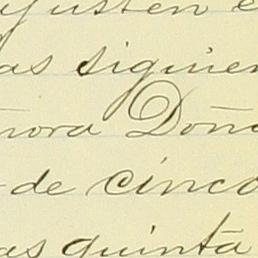 ajusten e
as siguien
ñora Doña
de cinco
as quinta